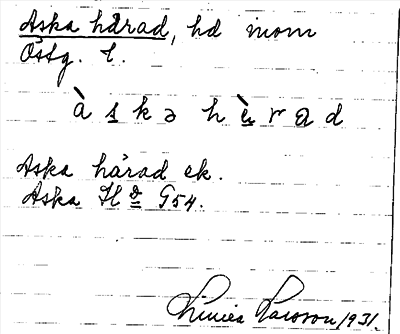 Aska härad, hd inom
Östg. l.
à s k ə h ὲ r a d
Aska härad ek.
Aska Hd G54.
Linnéa Larsson 1931.